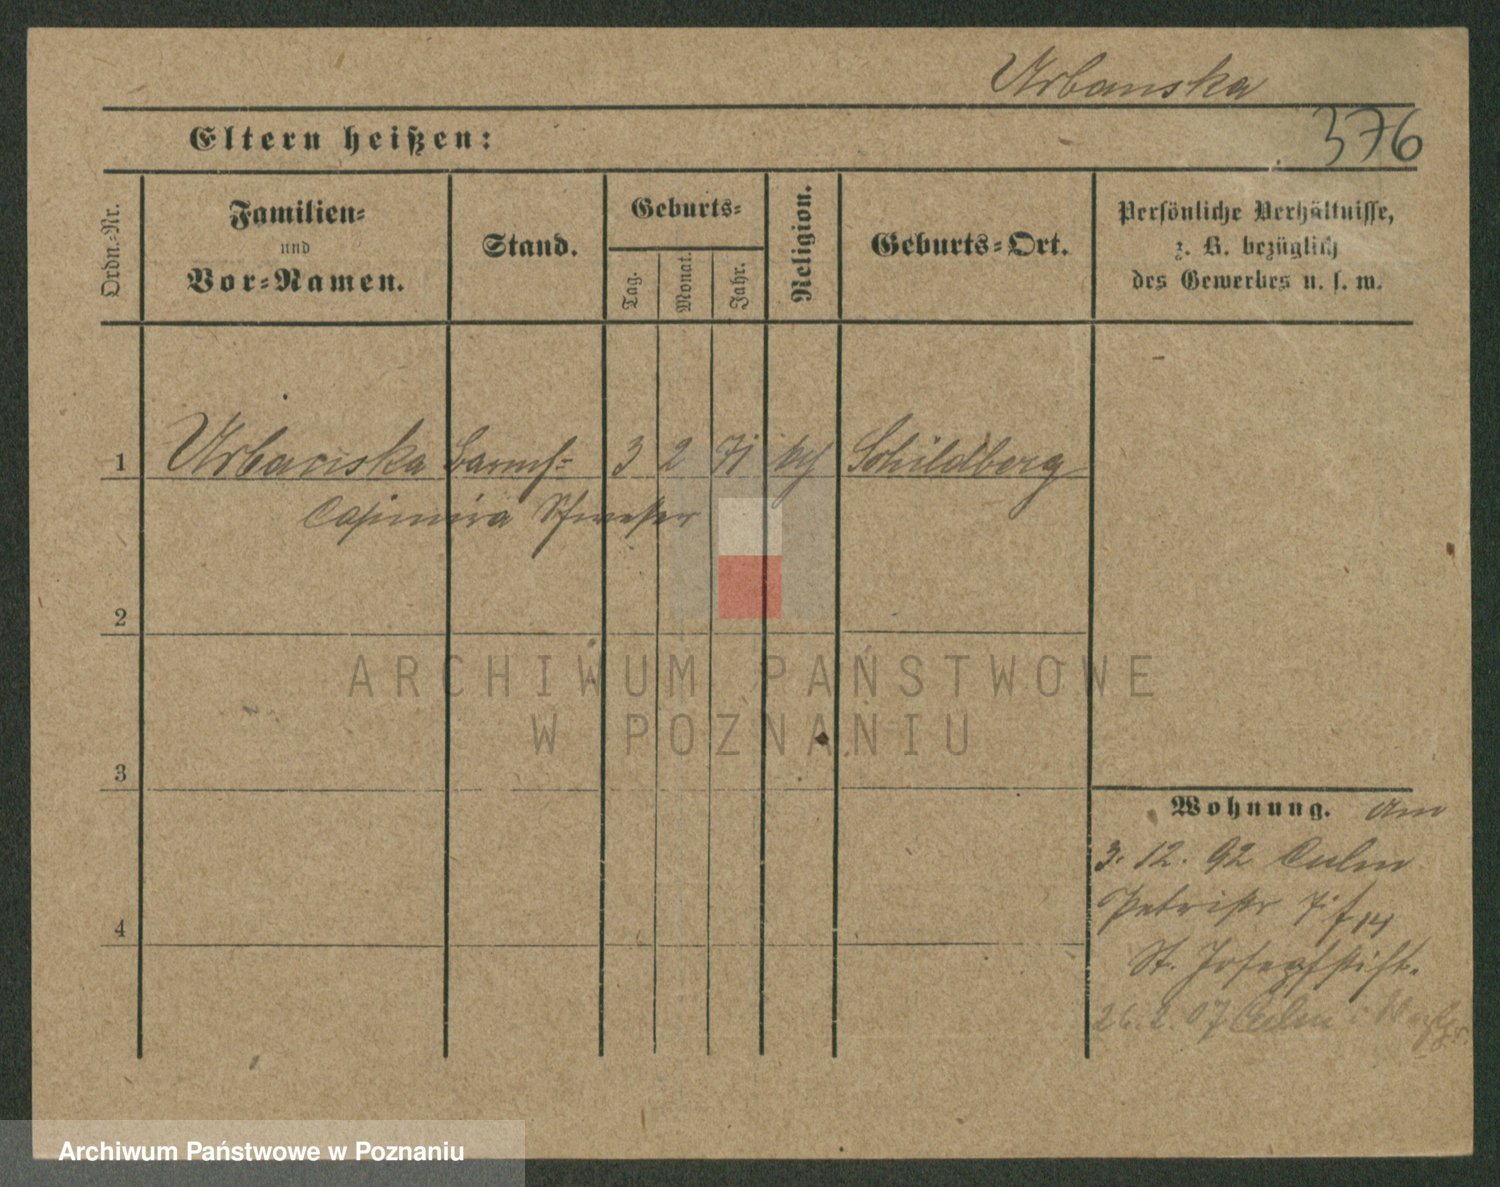 Urbanska
Eltern heißen:
376
Ordn.-Nr.
Familien-
und
Vor-Namen.
Stand.
Geburts-
Tag.
Monat.
Jahr.
Religion.
Geburts-Ort.
Persönliche Verhältnisse,
z. B. bezüglich
des Gewerbes u. s. w.
1 Urbanska Barmh- 3 2 71 kth Schildberg
Casimira Schwester
2
3
4
ARCHIWUM PAŃSTWOWE
W POZNANIU
Wohnung. am
3. 12. 92 Culm
Petristr
St. Josephstift.
26. 2. 07 Culm i. Westpr.
Archiwum Państwowe w Poznaniu